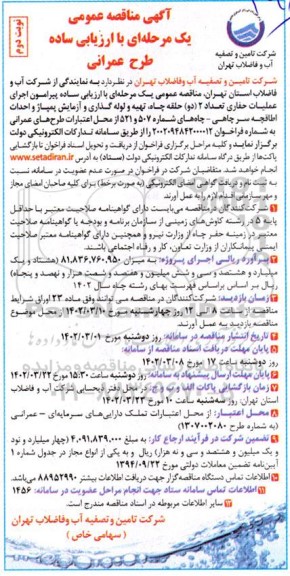 نوبت دوم
آگهی مناقصه عمومی
یک مرحله‌ای با ارزیابی ساده
طرح عمرانی
شرکت تامین و تصفیه
آب و فاضلاب تهران
شرکت تامین و تصفیه آب وفاضلاب تهران در نظردارد به نمایندگی از شرکت آب و
فاضلاب استان تهران، مناقصه عمومی یک مرحله‌ای با ارزیابی ساده پیرامون اجرای
عملیات حفاری تعداد ۲ (دو) حلقه چاه، تهیه و لوله گذاری و آزمایش پمپاژ و احداث
اطاقچه سر چاهی - چاه‌های شماره ۵۰۷ و ۵۳۱ از محل اعتبارات طرح‌های عمرانی
به شماره فراخوان را از طریق سامانه تدارکات الکترونیکی دولت
برگزار نمایند و کلیه مراحل برگزاری فراخوان از دریافت و تحویل اسناد فراخوان تا بازگشایی
پاکت‌ها از طریق درگاه سامانه تدارکات الکترونیکی دولت (ستاد) به آدرس www.setadiran.ir
انجام خواهد شد. متقاضیان شرکت در فراخوان در صورت عدم عضویت در سامانه، نسبت
به ثبت نام و دریافت گواهی امضای الکترونیکی (به صورت برخط) برای کلیه صاحبان امضای مجاز
و مهر سازمانی اقدام لازم را به عمل آورند.
۱ شرکت کنندگان در مناقصه می‌بایست دارای گواهینامه صلاحیت معتبر با حداقل
پایه ۵ در رشته کاوش‌های زمینی از سازمان برنامه و بودجه یا گواهینامه صلاحیت
معتبر در زمینه حفر چاه از وزارت نیرو و همچنین دارای گواهینامه معتبر صلاحیت
ایمنی پیمانکاران از وزارت تعاون، کار و رفاه اجتماعی باشند.
۲ برآورد ریالی اجرای پروژه: به میزان ۸۱,۸۳۶,۷۶۰,۹۵۰ (هشتاد و یک
میلیارد و هشتصد و سی و شش میلیون و هفتصد و شصت هزار و نهصد و پنجاه)
ریال بر اساس فهرست بهای رشته چاه سال ۱۴۰۲
۳ زمان بازدید: شرکت‌کنندگان در مناقصه می توانند وفق ماده ۲۳ اوراق شرایط
مناقصه از ساعت ۸ الی ۱۲ روز چهارشنبه مورخ ۱۴۰۲/۰۳/۱۰ از محل موضوع
مناقصه بازدید به عمل آورند.
۴ تاریخ انتشار مناقصه در سامانه: روز دوشنبه مورخ
۵ پایان مهلت دریافت اسناد مناقصه از سامانه:
روز دوشنبه ساعت ۱۷ مورخ ۱۴۰۲/۰۳/۰۸
۶ پایان مهلت ارسال پیشنهاد به سامانه: روز دوشنبه ساعت ۱۵:۳۰ مورخ ۱۴۰۲/۰۳/۲۲
۷ زمان بازگشایی پاکات الف، ب و ج: در محل دفتر قراردادهای شرکت آب و فاضلاب
استان تهران، روز سه‌شنبه ساعت ۱۰ مورخ ۱۴۰۲/۰۳/۲۳
۸ محل اعتبار: از محل اعتبارات تملک دارایی‌های سرمایه‌ای – عمرانی
(به شماره طرح ۱۳۰۷۰۰۳۰۸۰)
۹ تضمین شرکت در فرآیند ارجاع کار: به مبلغ ۴,۰۹۱,۸۳۹,۰۰۰ (چهار میلیارد و نود
و یک میلیون و هشتصد و سی و نه هزار) ریال و به یکی از انواع مجاز در جدول شماره ۱
آیین‌نامه تضمین معاملات دولتی مورخ ۱۳۹۴/۰۹/۲۲
۱۰ اطلاعات تماس دستگاه مناقصه‌گزار جهت دریافت اطلاعات بیشتر ۸۸۹۵۲۹۹۰ می‌باشد.
۱۱ اطلاعات تماس سامانه ستاد جهت انجام مراحل عضویت در سامانه: ۱۴۵۶
۱۲ سایر اطلاعات مربوطه در اسناد مناقصه مندرج است.
شرکت تامین و تصفیه آب وفاضلاب تهران
(سهامی خاص)